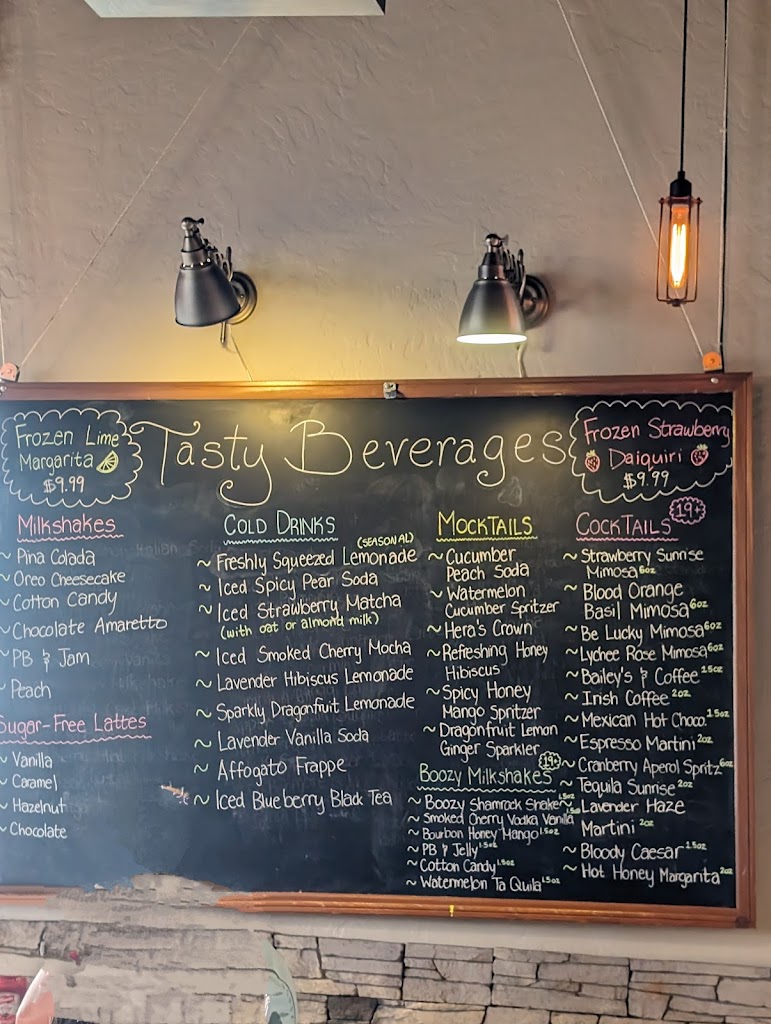 Frozen Lime
Margarita
$9.99
Tasty Beverages
Frozen Strawberry
Daiquiri
$9.99
Milkshakes
~ Pina Colada
~ Oreo Cheesecake
~ Cotton Candy
~ Chocolate Amaretto
~ PB & Jam
~ Peach
Sugar-Free Lattes
~ Vanilla
~ Caramel
~ Hazelnut
~ Chocolate
COLD DRINKS
(SEASONAL)
~ Freshly Squeezed Lemonade
~ Iced Spicy Pear Soda
~ Iced Strawberry Matcha
(with oat or almond milk)
~ Iced Smoked Cherry Mocha
~ Lavender Hibiscus Lemonade
~ Sparkly Dragonfruit Lemonade
~ Lavender Vanilla Soda
~ Affogato Frappe
~ Iced Blueberry Black Tea
MOCKTAILS
~ Cucumber
Peach Soda
~ Watermelon
Cucumber Spritzer
~ Hera's Crown
~ Refreshing Honey
Hibiscus
~ Spicy Honey
Mango Spritzer
~ Dragonfruit Lemon
Ginger Sparkler
Boozy Milkshakes 19+
~ Boozy Shamrock Shake 1.5oz
~ Smoked Cherry Vodka Vanilla 1.5oz
~ Bourbon Honey Mango 1.5oz
~ PB & Jelly 1.5oz
~ Cotton Candy 1.5oz
~ Watermelon Ta Quila 1.5oz
COCKTAILS 19+
~ Strawberry Sunrise
Mimosa 6oz
~ Blood Orange
Basil Mimosa 6oz
~ Be Lucky Mimosa 6oz
~ Lychee Rose Mimosa 6oz
~ Bailey's & Coffee 1.5oz
~ Irish Coffee 2oz
~ Mexican Hot Choco 1.5oz
~ Espresso Martini 2oz
~ Cranberry Aperol Spritz 6oz
~ Tequila Sunrise 2oz
~ Lavender Haze
Martini 2oz
~ Bloody Caesar 1.5oz
~ Hot Honey Margarita 2oz